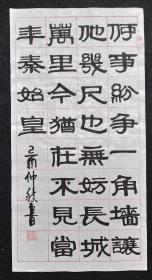 何事紛争一角墻讓
他幾尺也無妨長城
萬里今猶在不見當
年秦始皇
仲秋書